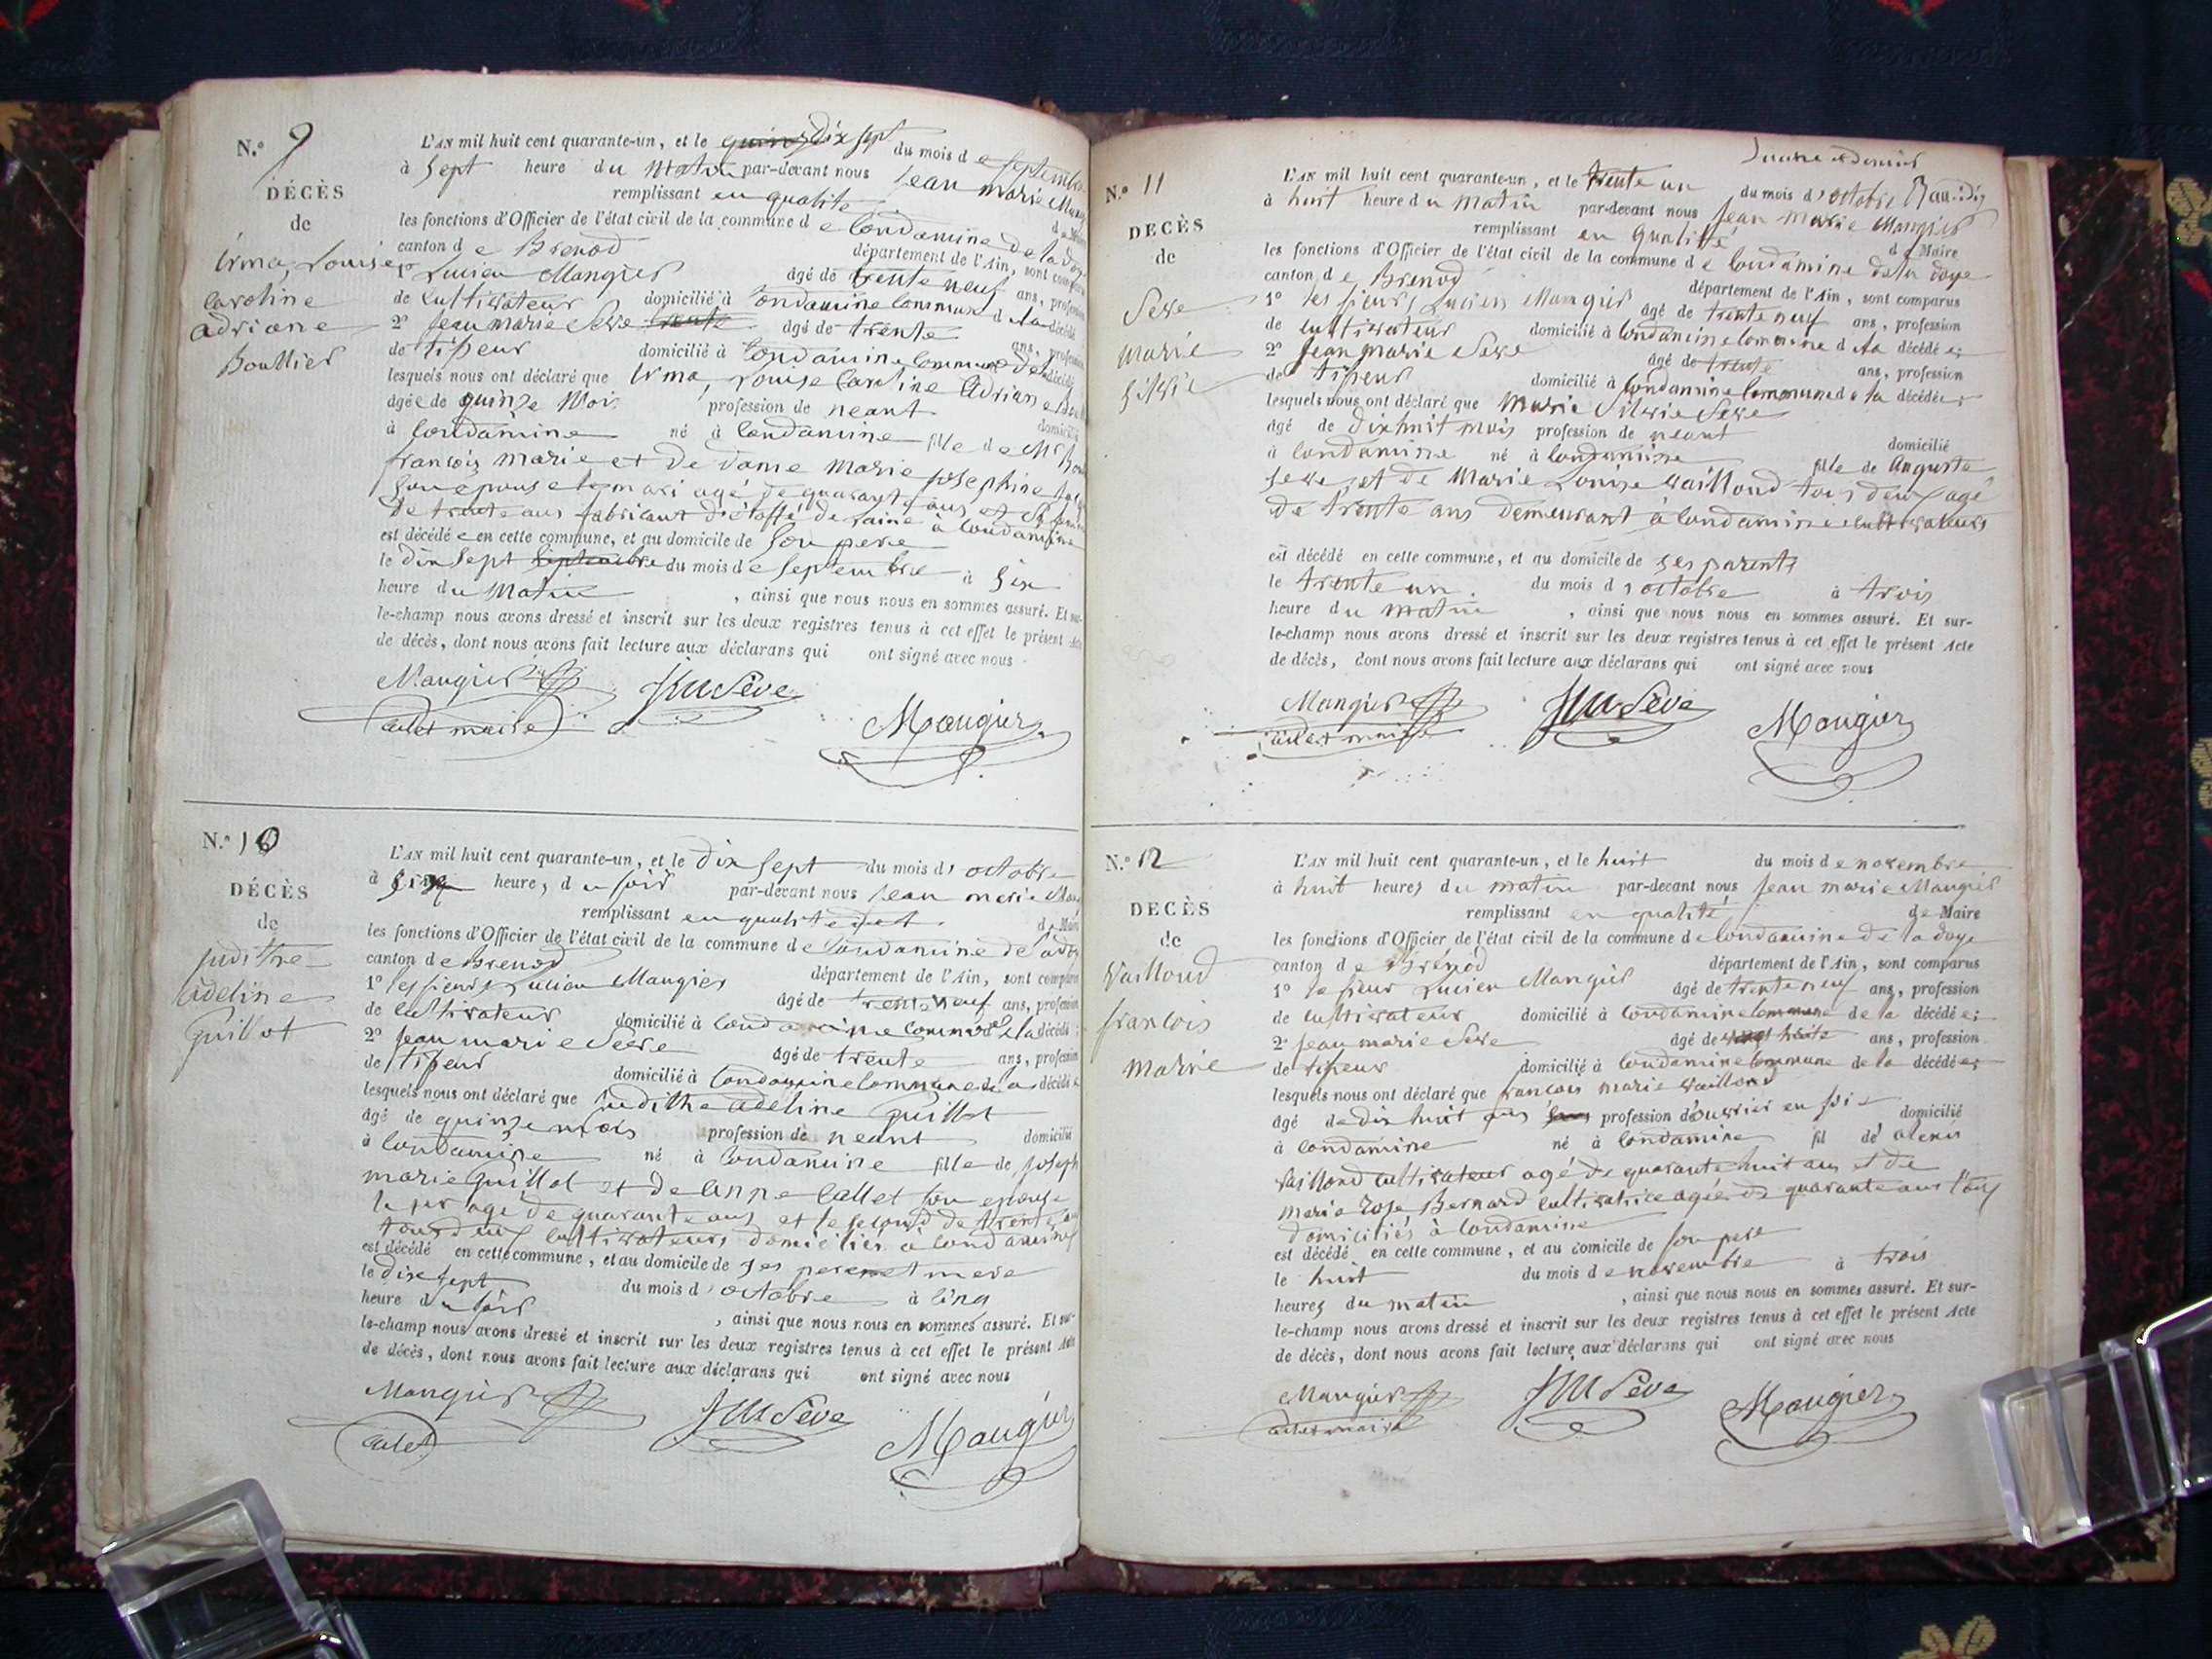 N.° 9
DÉCÈS
de
Irma, Louise
Caroline
adriane
Boullier
L'AN mil huit cent quarante-un, et le dix sept du mois de Septembre
à Sept heure du Matin par-devant nous Jean Marie
remplissant en qualité
les fonctions d'Officier de l'état civil de la commune de Condamine de la doye
canton de Brenod département de l'Ain, sont
Lucien Maugier âgé de trente neuf ans, profession
de Cultivateur domicilié à Condamine Commune de la décédé
2° Jean marie Seve âgé de trente ans, profession
de tisseur domicilié à Condamine Commune de la décédé
lesquels nous ont déclaré que Irma, Louise Caroline Adriane
âgée de quinze Mois profession de neant domicilié
à Condamine né à Condamine fille de Mr
francois Marie et de dame Marie josephine
Son epouse le mari agé de quarante ans et
de trente ans fabricant d'étoffe de laine à Condamine
est décédée en cette commune, et au domicile de Son pere
le dix Sept Septembre du mois de Septembre à Six
heure du Matin , ainsi que nous nous en sommes assuré. Et sur-
le-champ nous avons dressé et inscrit sur les deux registres tenus à cet effet le présent Acte
de décès, dont nous avons fait lecture aux déclarans qui ont signé avec nous
Maugier JM Sève Maugier
adet maire
N.° 10
DÉCÈS
de
judithe
adeline
Guillot
L'AN mil huit cent quarante-un, et le dix Sept du mois d'octobre
à heures, du soir par-devant nous Jean marie
remplissant en qualité de Maire
les fonctions d'Officier de l'état civil de la commune de Condamine de la doye
canton de Brenod département de l'Ain, sont comparus
1° les sieurs Lucien Maugier âgé de trente neuf ans, profession
de Cultivateur domicilié à Condamine Commune de la décédé
2° Jean marie Seve âgé de trente ans, profession
de tisseur domicilié à Condamine Commune de la décédé
lesquels nous ont déclaré que Judithe adeline Guillot
âgé de quinze mois profession de neant domicilié
à Condamine né à Condamine fille de joseph
marie Guillot et de anne Callet Son epouse
le per agé de quarante ans et le second de trente
tous deux Cultivateurs domiciliés à Condamine
est décédé en cette commune, et au domicile de ses pere et mere
le dix Sept du mois d'octobre à Cinq
heure du soir , ainsi que nous nous en sommes assuré. Et sur-
le-champ nous avons dressé et inscrit sur les deux registres tenus à cet effet le présent Acte
de décès, dont nous avons fait lecture aux déclarans qui ont signé avec nous
Maugier JM Sève Maugier
adet
N.° 11
DECÈS
de
Seve
Marie
Silvie
L'AN mil huit cent quarante-un, et le trente un du mois d'octobre
à huit heure du matin par-devant nous Jean marie Maugier
remplissant en qualité de Maire
les fonctions d'Officier de l'état civil de la commune de Condamine de la doye
canton de Brenod département de l'Ain, sont comparus
1° les sieurs Lucien Maugier âgé de trente neuf ans, profession
de Cultivateur domicilié à Condamine Commune de la décédé
2° Jean marie Seve âgé de trente ans, profession
de tisseur domicilié à Condamine Commune de la décédé
lesquels nous ont déclaré que Marie Silvie Seve
âgé de dix huit mois profession de neant domicilié
à Condamine né à Condamine fille de Auguste
Seve et de Marie Louise Vaillond tous deux agé
de trente ans demeurant à Condamine Cultivateurs
est décédé en cette commune, et au domicile de ses parents
le trente un du mois d'octobre à trois
heure du matin , ainsi que nous nous en sommes assuré. Et sur-
le-champ nous avons dressé et inscrit sur les deux registres tenus à cet effet le présent Acte
de décès, dont nous avons fait lecture aux déclarans qui ont signé avec nous
Maugier JM Sève Maugier
adet maire
N.° 12
DECÈS
de
Vaillond
francois
Marie
L'AN mil huit cent quarante-un, et le huit du mois de novembre
à huit heures du matin par-devant nous Jean marie Maugier
remplissant en qualité de Maire
les fonctions d'Officier de l'état civil de la commune de Condamine de la doye
canton de Brénod département de l'Ain, sont comparus
1° le sieur Lucien Maugier âgé de trente neuf ans, profession
de Cultivateur domicilié à Condamine Commune de la décédé
2° Jean marie Seve âgé de trente ans, profession
de tisseur domicilié à Condamine Commune de la décédé
lesquels nous ont déclaré que francois marie Vaillond
âgé de dix huit ans profession d'ouvrier en soie domicilié
à Condamine né à Condamine fil de alexis
Vaillond Cultivateur agé de quarante huit ans et de
marie Rose Bernard Cultivatrice agée de quarante ans tous
domiciliés à Condamine
est décédé en cette commune, et au domicile de son pere
le huit du mois de novembre à trois
heures du matin , ainsi que nous nous en sommes assuré. Et sur-
le-champ nous avons dressé et inscrit sur les deux registres tenus à cet effet le présent Acte
de décès, dont nous avons fait lecture aux déclarans qui ont signé avec nous
Maugier JM Sève Maugier
adet maire